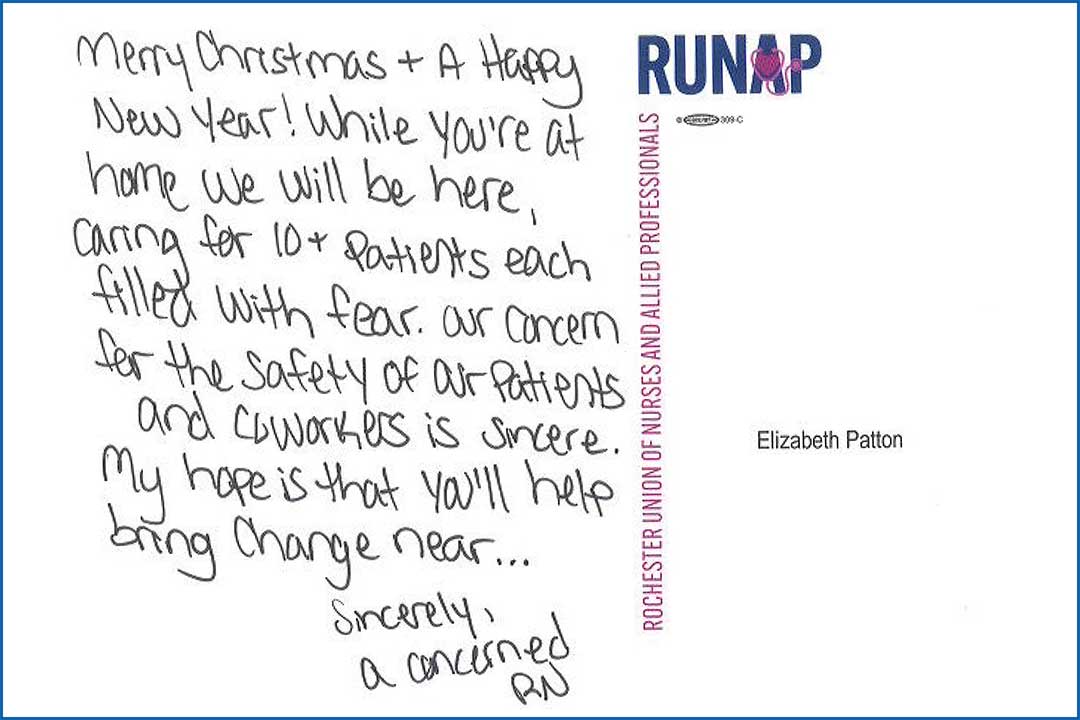 Merry Christmas + A Happy
New Year! While you're at
home we will be here,
caring for 10+ patients each
filled with fear. Our concern
for the safety of our patients
and coworkers is sincere.
My hope is that you'll help
bring change near...
Sincerely,
a concerned
RN
RUNAP
309-C
ROCHESTER UNION OF NURSES AND ALLIED PROFESSIONALS
Elizabeth Patton